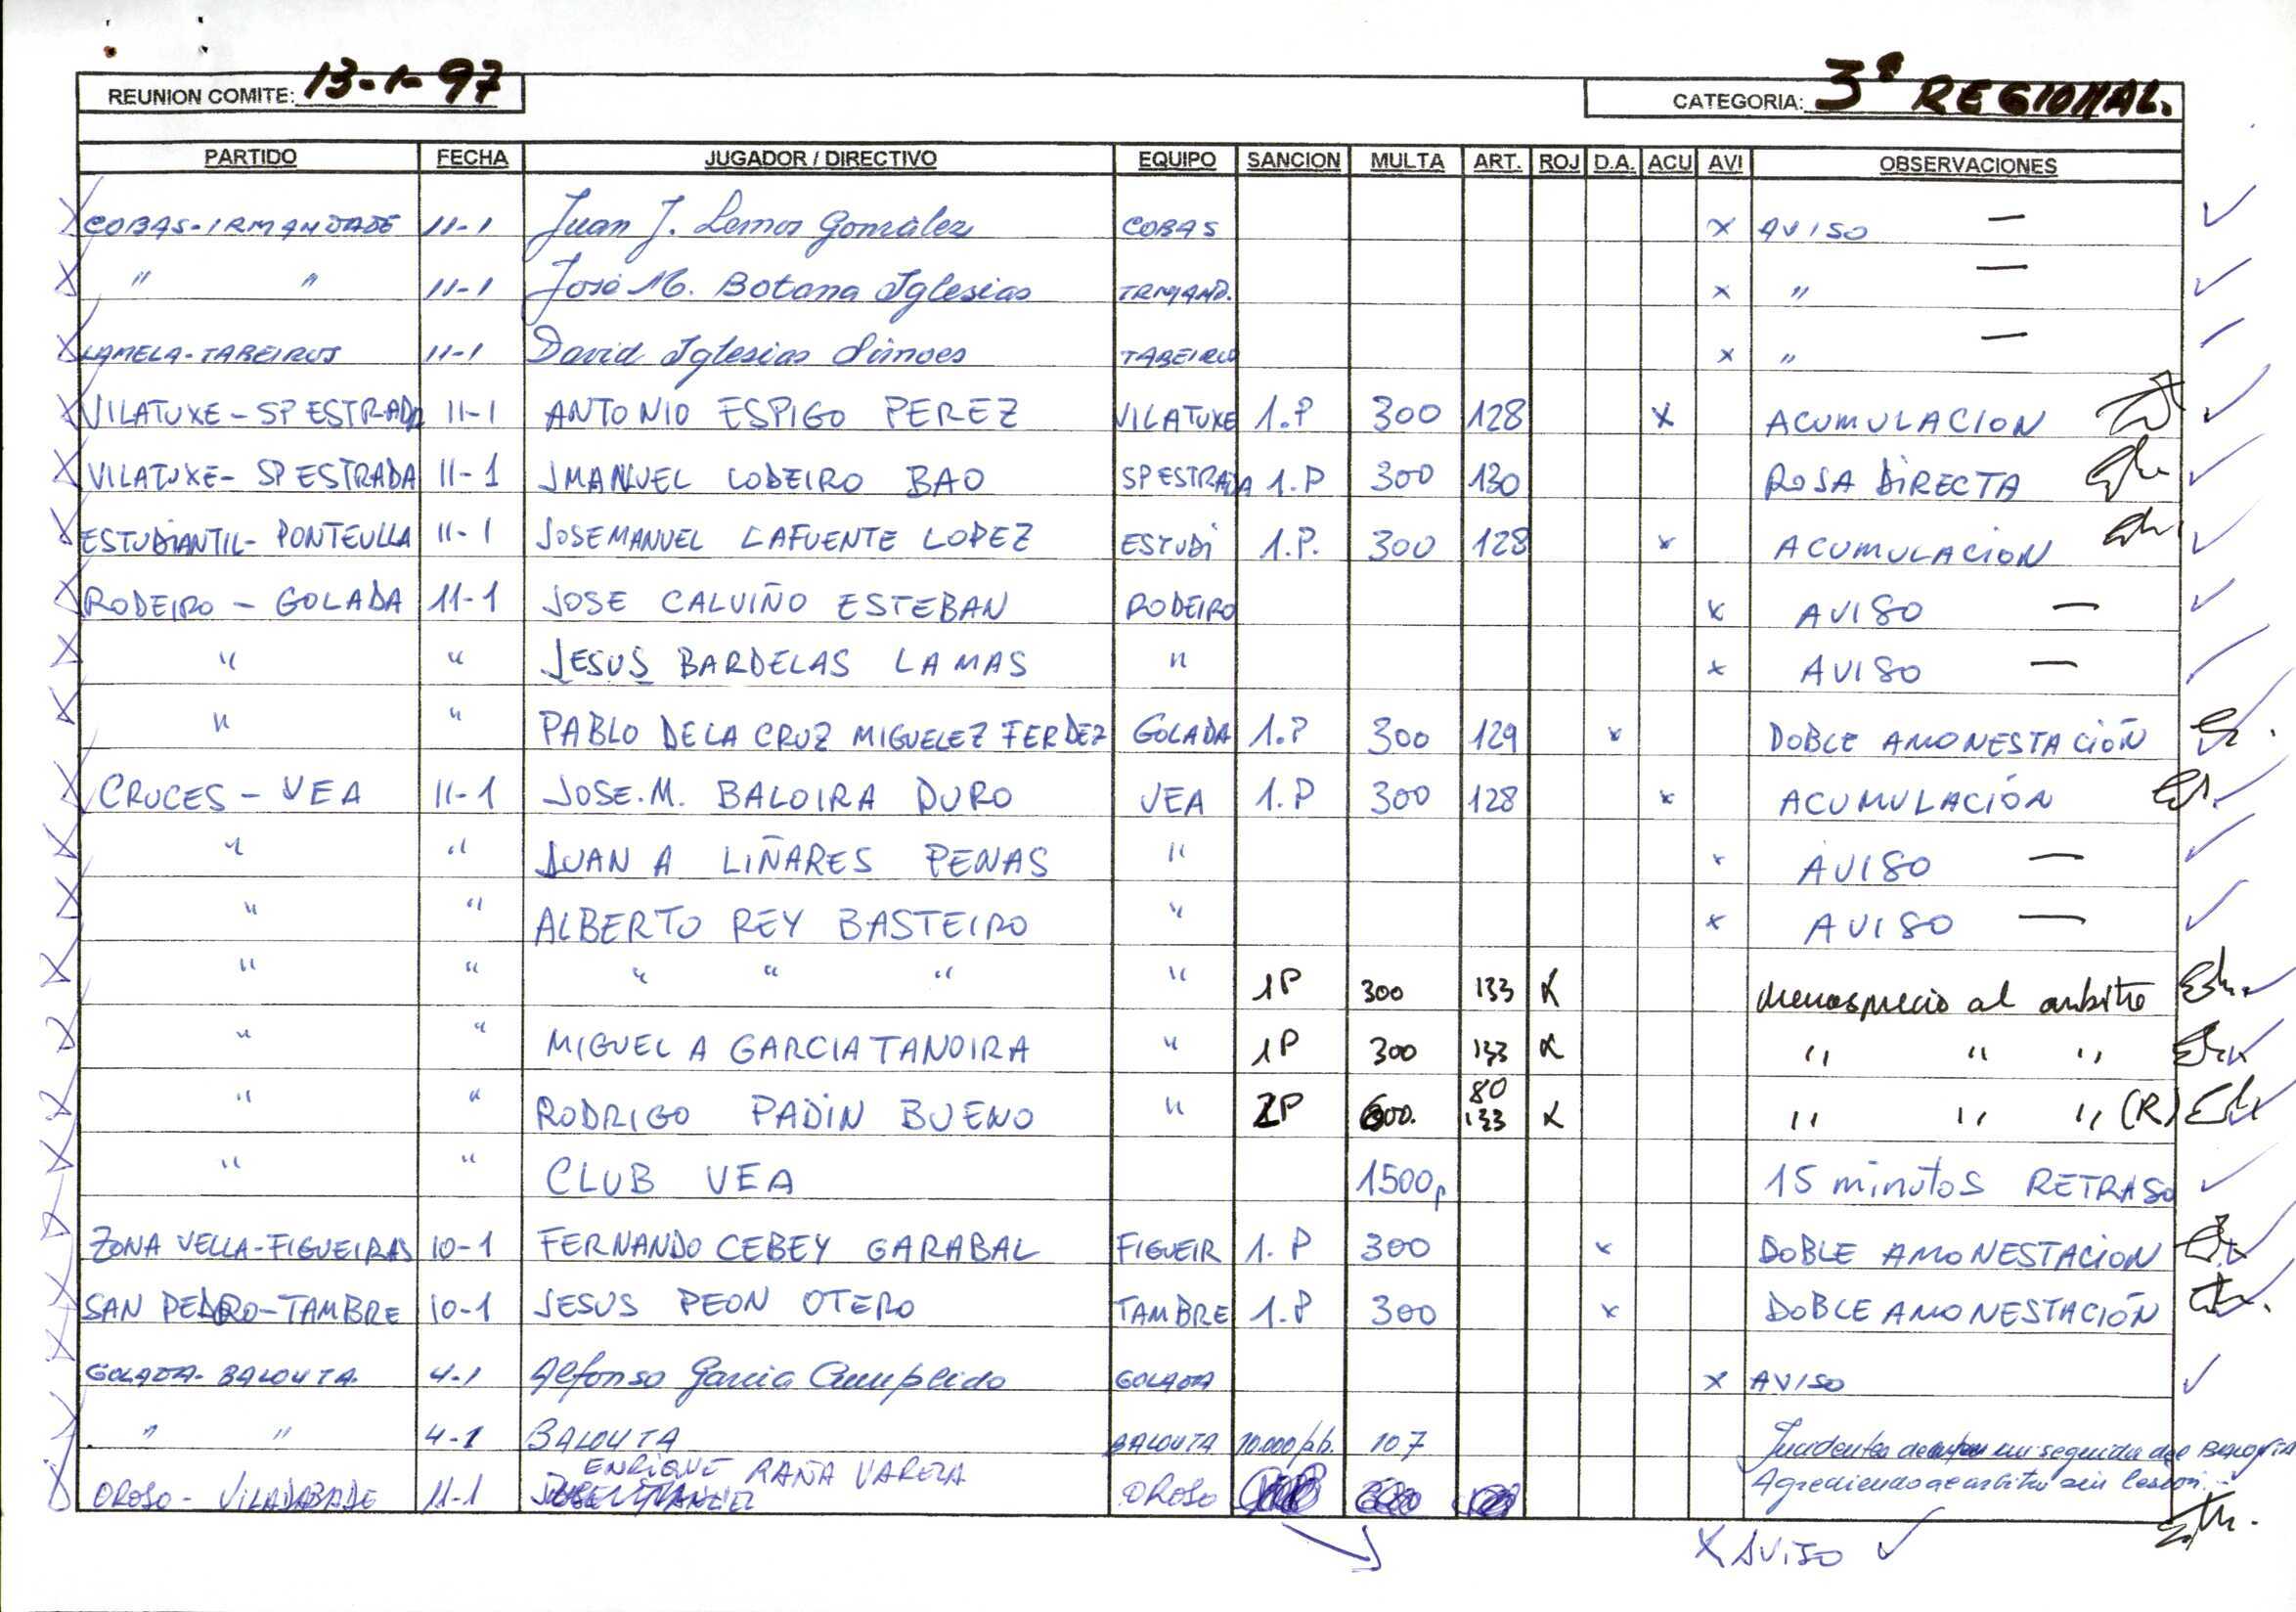 REUNION COMITE: 13-1-97 CATEGORIA: 3ª REGIONAL.
PARTIDO FECHA JUGADOR / DIRECTIVO EQUIPO SANCION MULTA ART. ROJ D.A. ACU AVI OBSERVACIONES
COBAS-IRMANDADE 11-1 Juan J. Lemos González COBAS x AVISO —
" " 11-1 José M. Botana Iglesias IRMAND. x " —
LAMELA-TABEIROS 11-1 David Iglesias Simoes TABEIROS x " —
VILATUXE - SP ESTRADA 11-1 ANTONIO ESPIGO PEREZ VILATUXE 1.P 300 128 x ACUMULACION
VILATUXE - SP ESTRADA 11-1 JMANUEL LODEIRO BAO SP ESTRADA 1.P 300 130 ROJA DIRECTA
ESTUDIANTIL - PONTEULLA 11-1 JOSE MANUEL LAFUENTE LOPEZ ESTUDI 1.P. 300 128 x ACUMULACION
RODEIRO - GOLADA 11-1 JOSE CALVIÑO ESTEBAN RODEIRO x AVISO —
" " JESUS BARDELAS LAMAS " x AVISO —
" " PABLO DE LA CRUZ MIGUELEZ FERDEZ GOLADA 1.P 300 129 x DOBLE AMONESTACIÓN
CRUCES - VEA 11-1 JOSE.M. BALOIRA DURO VEA 1.P 300 128 x ACUMULACIÓN
" " JUAN A LIÑARES PENAS " x AVISO —
" " ALBERTO REY BASTEIRO " x AVISO —
" " " " " " 1P 300 133 x menosprecio al arbitro
" " MIGUEL A GARCIA TANOIRA " 1P 300 133 x " " "
" " RODRIGO PADIN BUENO " 2P 600. 80 133 x " " " (R)
" " CLUB VEA 1500p 15 minutos RETRASO
ZONA VELLA-FIGUEIRAS 10-1 FERNANDO CEBEY GARABAL FIGUEIR 1.P 300 x DOBLE AMONESTACION
SAN PEDRO-TAMBRE 10-1 JESUS PEON OTERO TAMBRE 1.P 300 x DOBLE AMONESTACIÓN
GOLADA-BALOUTA 4-1 Alfonso Garcia Cumplido GOLADA x AVISO
" " 4-1 BALOUTA BALOUTA 10.000 107 Incidentes un seguidor del BALOUTA
Agrediendo al arbitro sin lesión.
OROSO - VILADABADE 11-1 ENRIQUE RAÑA VARELA OROSO
X AVISO